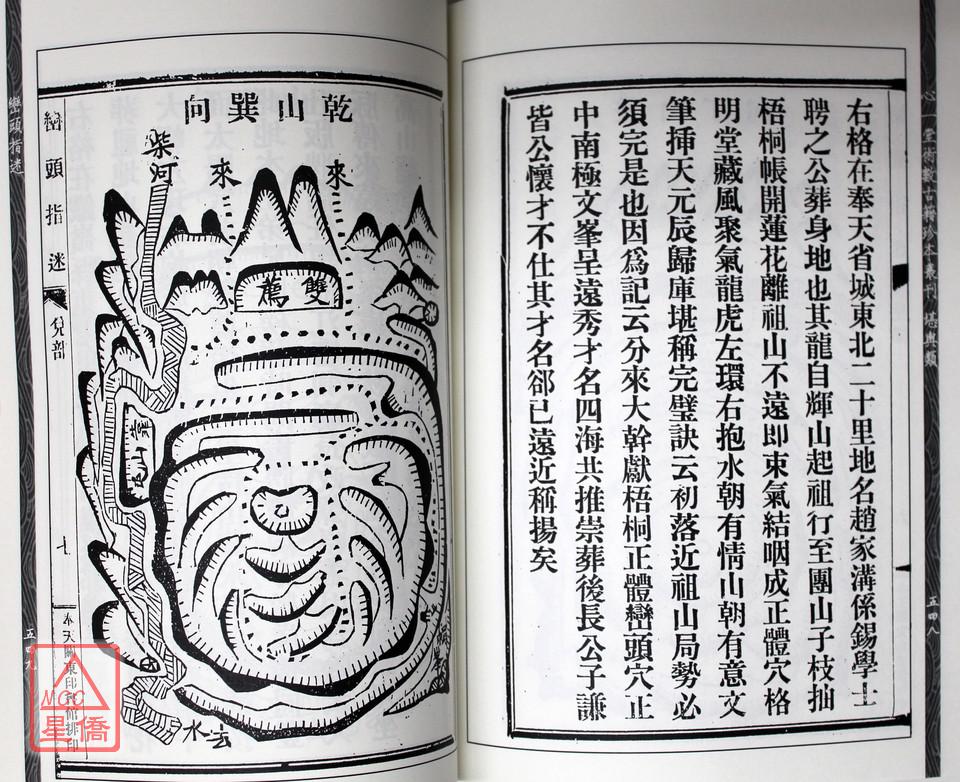 心一堂術數古籍珍本叢刊 堪輿類
五四八
右格在奉天省城東北二十里地名趙家溝係錫學士
聘之公葬身地也其龍自輝山起祖行至團山子枝拙
梧桐帳開蓮花離祖山不遠即束氣結咽成正體穴格
明堂藏風聚氣龍虎左環右抱水朝有情山朝有意文
筆挿天元辰歸庫堪稱完璧訣云初落近祖山局勢必
須完是也因為記云分來大幹獻梧桐正體巒頭穴止
中南極文峯呈遠秀才名四海共推崇葬後長公子謙
皆公懷才不仕其才名郤已遠近稱揚矣
乾山巽向
來
來
柴河
雙鳶
水去
巒頭指迷
兌部
七
奉天關東印書館排印
巒頭指迷
五四九
MCC
星僑